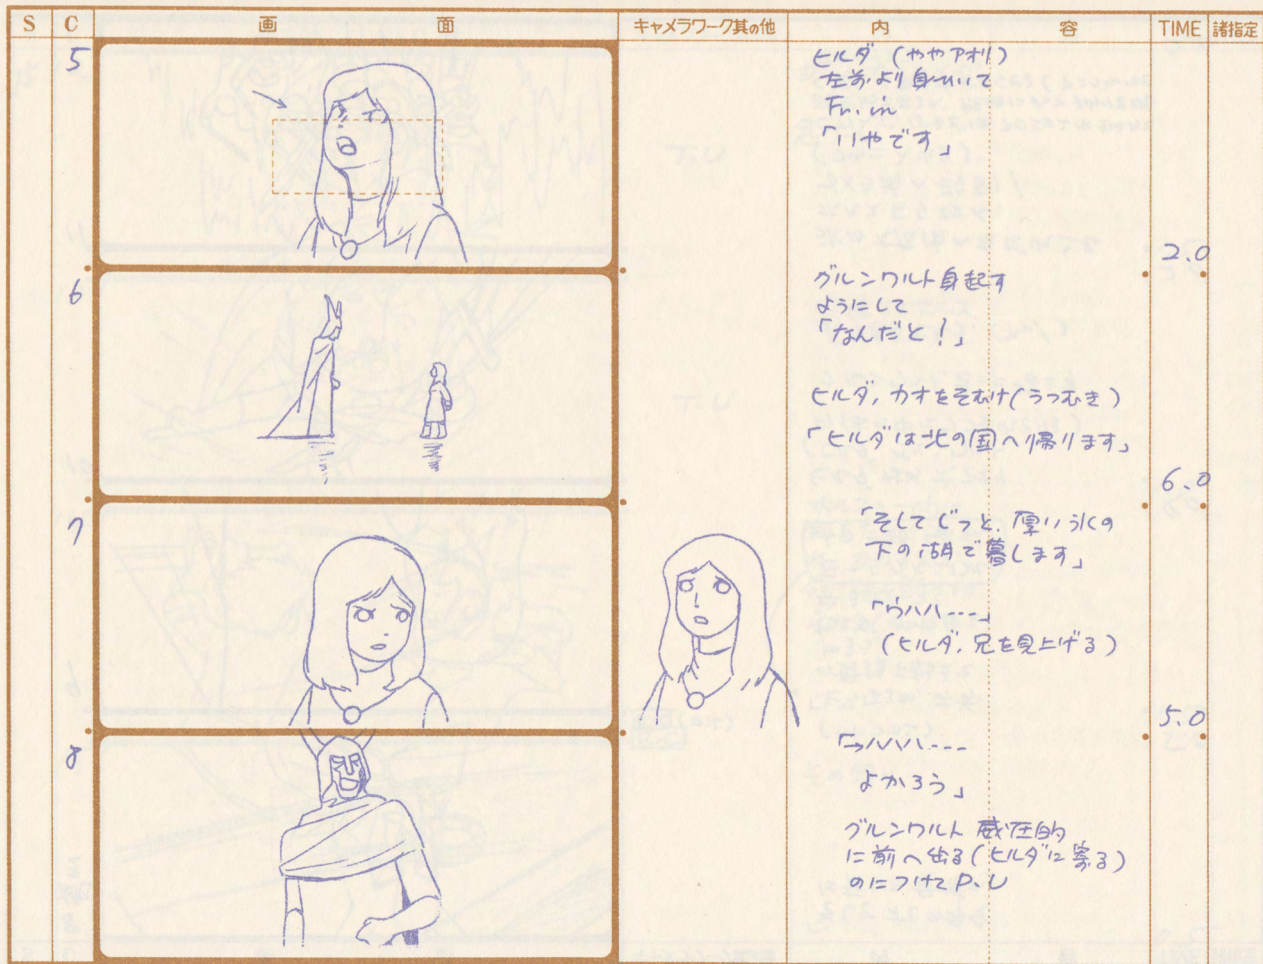 S C 画面 キャメラワーク其の他 内容 TIME 諸指定
5
ヒルダ (ややアオリ)
左前より身ひいて
Fr. in
「いやです」
2.0
6
グルンワルト身起す
ようにして
「なんだと!」
ヒルダ, カオをそむけ(うつむき)
「ヒルダは北の国へ帰ります」
6.0
7
「そしてじっと、厚い氷の
下の湖で暮します」
「ウハハ---」
(ヒルダ, 兄を見上げる)
5.0
8
「ウハハハ---
よかろう」
グルンワルト 威圧的
に前へ出る(ヒルダに寄る)
のにつけてP.U